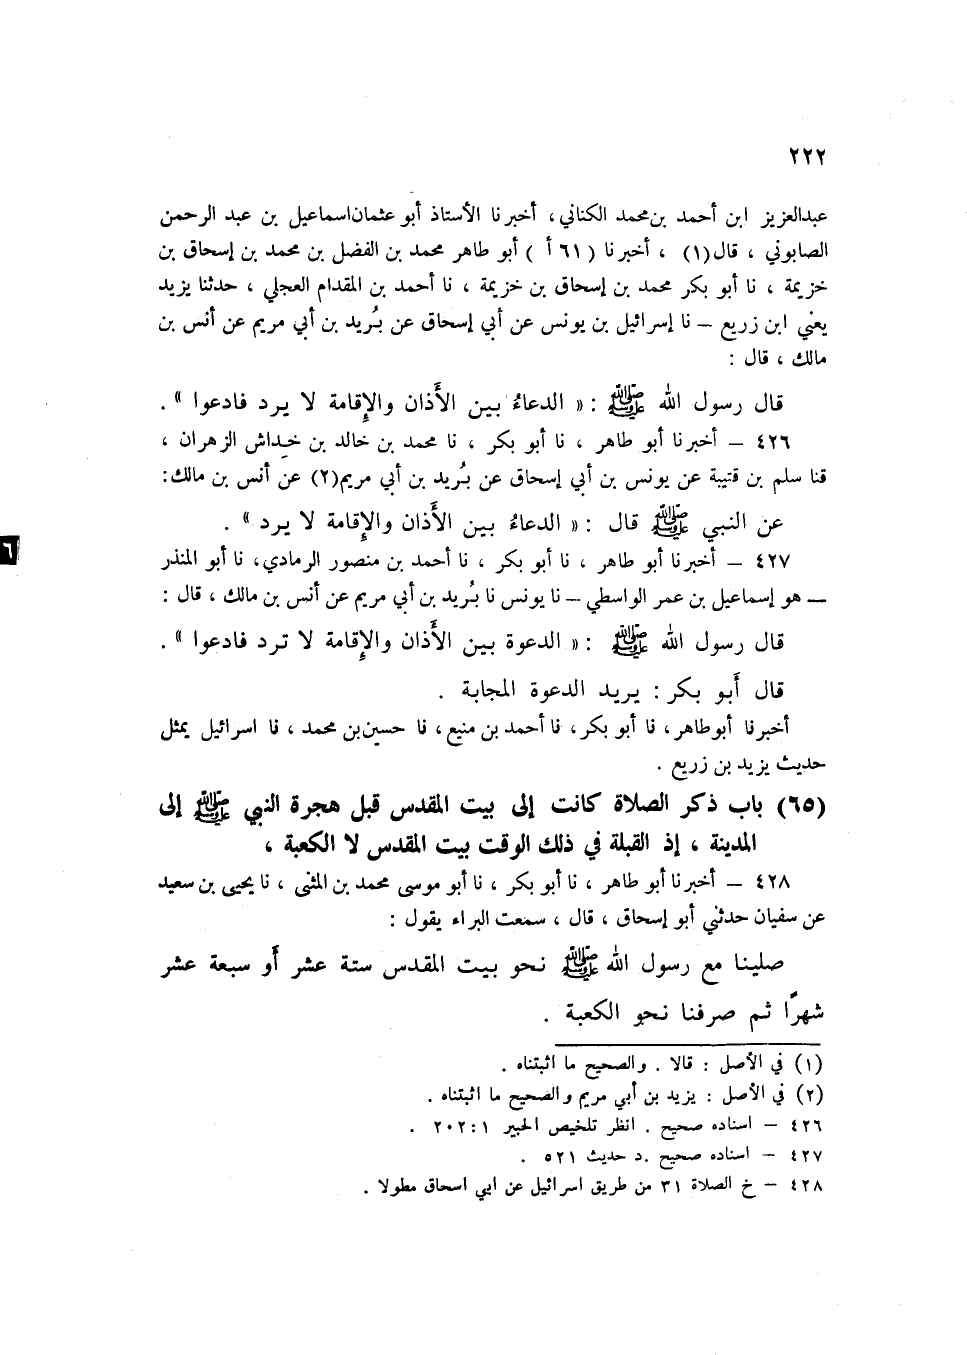 ٢٢٢
عبدالعزيز ابن أحمد بن محمد الكناني، أخبرنا الأستاذ أبو عثمان اسماعيل بن عبد الرحمن
الصابوني ، قال(١) ، أخبرنا ( ٦١ أ ) أبو طاهر محمد بن الفضل بن محمد بن إسحاق بن
خزيمة ، نا أبو بكر محمد بن إسحاق بن خزيمة ، نا أحمد بن المقدام العجلي ، حدثنا يزيد
يعني ابن زريع – نا إسرائيل بن يونس عن أبي إسحاق عن بُريد بن أبي مريم عن أنس بن
مالك ، قال :
قال رسول الله ﷺ : « الدعاءُ بين الأَذان والإِقامة لا يرد فادعوا » .
٤٢٦ – أخبرنا أبو طاهر ، نا أبو بكر ، نا محمد بن خالد بن خداش الزهران ،
قنا سلم بن قتيبة عن يونس بن أبي إسحاق عن بُريد بن أبي مريم(٢) عن أنس بن مالك:
عن النبي ﷺ قال : « الدعاءُ بين الأَذان والإِقامة لا يرد » .
٤٢٧ – أخبرنا أبو طاهر ، نا أبو بكر ، نا أحمد بن منصور الرمادي، نا أبو المنذر
– هو إسماعيل بن عمر الواسطي – نا يونس نا بُريد بن أبي مريم عن أنس بن مالك ، قال :
قال رسول الله ﷺ : « الدعوة بين الأَذان والإِقامة لا ترد فادعوا » .
قال أَبو بكر : يريد الدعوة المجابة .
أخبرنا أبوطاهر، نا أبو بكر، نا أحمد بن منيع، نا حسين بن محمد ، نا اسرائيل يمثل
حديث يزيد بن زريع .
(٦٥) باب ذكر الصلاة كانت إلى بيت المقدس قبل هجرة النبي ﷺ إلى
المدينة ، إذ القبلة في ذلك الوقت بيت المقدس لا الكعبة ،
٤٢٨ – أخبرنا أبو طاهر ، نا أبو بكر ، نا أبو موسى محمد بن المثنى ، نا يحيى بن سعيد
عن سفيان حدثني أبو إسحاق ، قال ، سمعت البراء يقول :
صلينا مع رسول الله ﷺ نحو بيت المقدس ستة عشر أَو سبعة عشر
شهرًا ثم صرفنا نحو الكعبة .
(١) في الأصل : قالا . والصحيح ما اثبتناه .
(٢) في الأصل : يزيد بن أبي مريم والصحيح ما اثبتناه .
٤٢٦ – اسناده صحيح . انظر تلخيص الحبير ١ :٢٠٢ .
٤٢٧ – اسناده صحيح .د حديث ٥٢١ .
٤٢٨ – خ الصلاة ٣١ من طريق اسرائيل عن ابي اسحاق مطولا .
٦